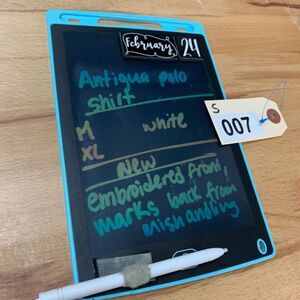 February 24
Antigua polo
Shirt
S
007
M white
XL
New
embroidered front,
marks back from
mishandling